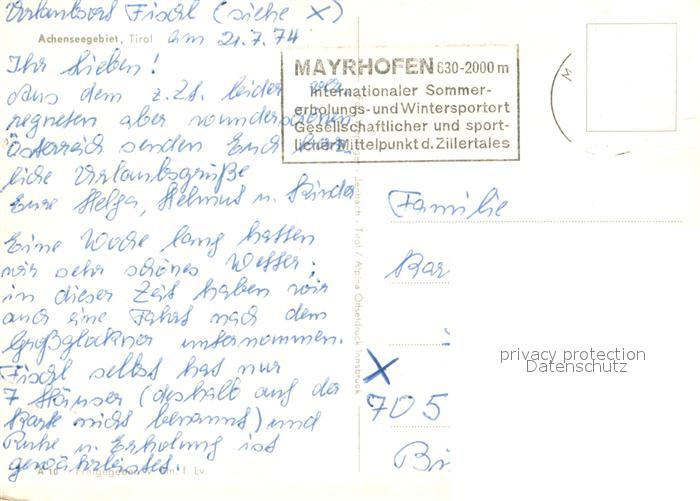 Urlaubsort Fischl (siehe X)
Achenseegebiet, Tirol
am 21.7.74
Ihr Lieben!
Aus dem z.Zt. leider
regneten aber wunderschönen
Österreich senden Euch
liche Urlaubsgrüße
Eure Helga, Helmut u. Kinder
Eine Woche lang hatten
wir sehr schönes Wetter;
in dieser Zeit haben wir
auch eine Fahrt nach dem
Großglockner unternommen.
Fischl selbst hat nur
7 Häuser (deshalb auf der
Karte nicht benannt) und
Ruhe u. Erholung ist
gewährleistet.
A 10 Freigegeben v. f. Lv.
MAYRHOFEN 630-2000 m
Internationaler Sommer-
erholungs- und Wintersportort
Gesellschaftlicher und sport-
licher Mittelpunkt d. Zillertales
Jenbach - Tirol / Alpina Offsetdruck Innsbruck
Familie
Bar
X
705
Bi
privacy protection
Datenschutz